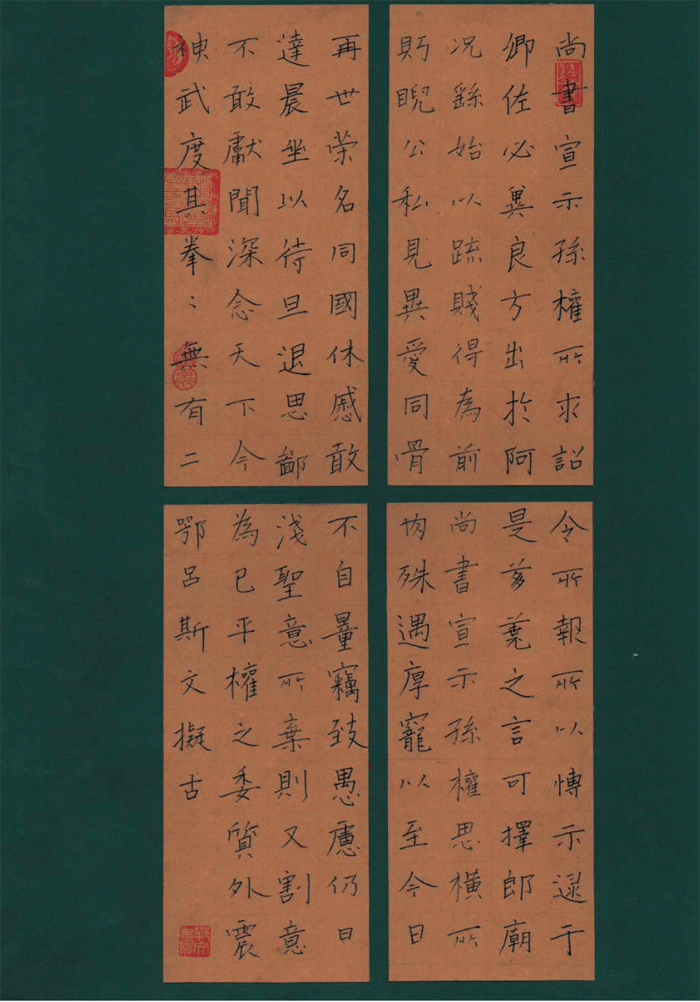 尚書宣示孫權所求詔
令所報所以愽示逮于
卿佐必異良方出於阿
是芻蕘之言可擇郎廟
況繇始以疏賤得為前
尚書宣示孫權思橫所
眄睨公私見異愛同骨
肉殊遇厚寵以至今日
再世荣名同國休慼敢
不自量竊致愚慮仍日
達晨坐以待旦退思鄙
淺聖意所棄則又割意
不敢獻聞深念天下今
為已平權之委質外震
神武度其拳〻無有二
鄂呂斯文擬古